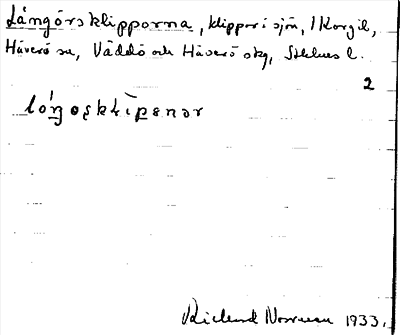 Långörsklipporna, klippor i sjön, 1 Korgil,
Häverö sn, Väddö och Häverö skg, Sthlms l.
2
Rickard Norrman 1933.